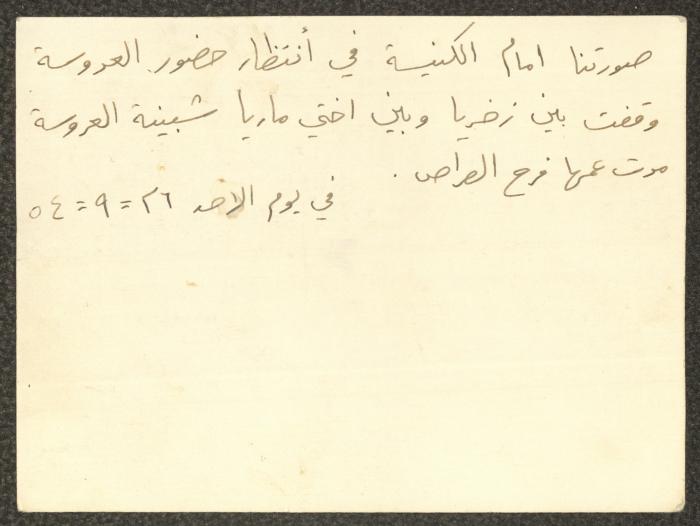 صورتنا امام الكنيسة في أنتظار حضور العروسة
وقفت بين زخريا وبين اختي ماريا شبينة العروسة
مرت عمها فرح
في يوم الاحد ٢٦ = ٩ = ٥٤